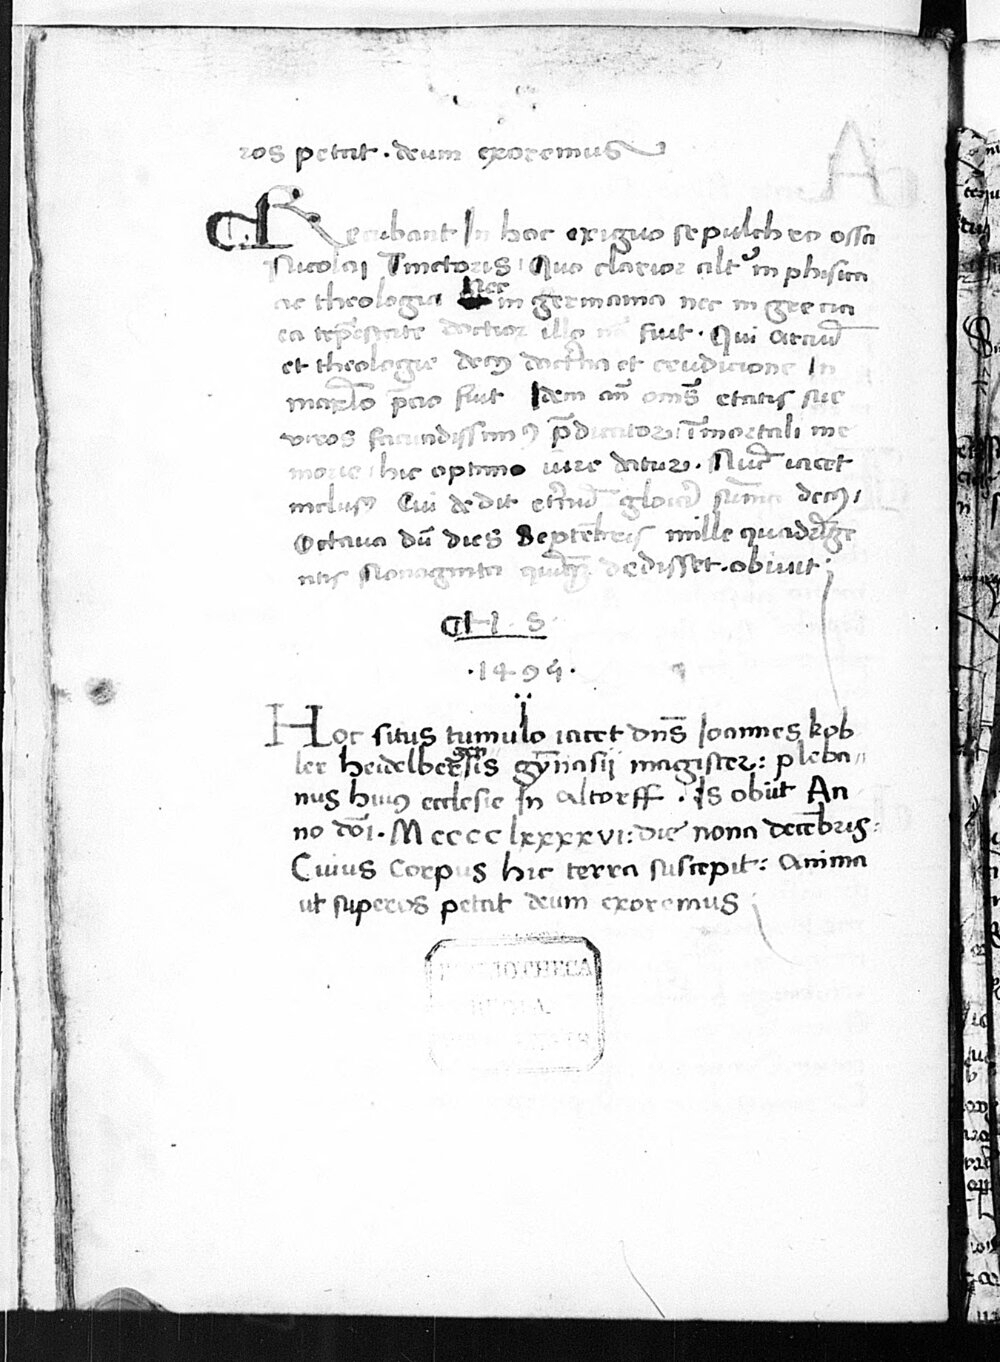 ros petat · deum exoremus
Recubant In hoc exiguo sepulchro ossa
Nicolai Tinctoris Quo clarior altꝰ in phisica
ac theologia Nec in germania nec in grecia
ea tēpestate doctior illo nō fuit · Qui arciū
et theologie decꝰ doctrīa et erudicione In
maxīo p̄cio fuit Idem an̄ om̄s etatis sue
viros facundissimꝰ p̄dicator: īmortali me
morie hic optimo iure datur · Nūc iacet
inclusꝰ Cui dedit et'nū glori
Octaua dū dies Septēbris mille quadrīge
ntis Nonaginta dedisset · obiuit ;
H · S ·
· 1495 ·
Hoc situs tumulo iacet dn̄s Ioannes kob
ler heidelbergēsis gȳnasij magister: pleba
nus huiꝰ ecclesie In Altorff · Is obiit An
no dōi · M cccc lxxxxvi: die nona decēbris:
Cuius Corpus hic terra suscepit: Anima
ut superos petat deum exoremus ;
BIBLIOTHECA
REGIA